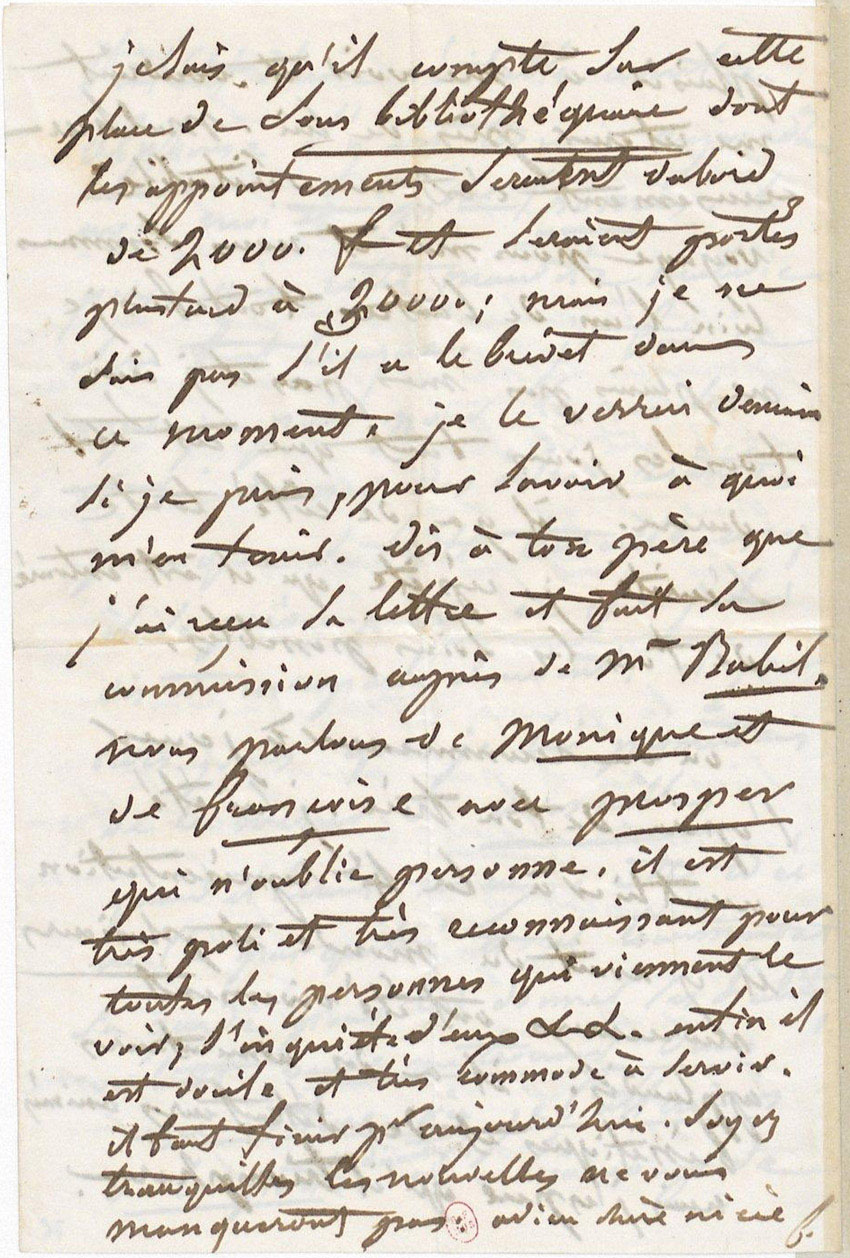 je sais qu'il compte sur cette
place de sous bibliothéquaire dont
les appointements seraient dabord
de 2000. f et seraient portés
plustard à 3000.; mais je ne
sais pas s'il a le brévet dans
ce moment. je le verrai demain
si je puis, pour savoir à quoi
m'en tenir. dis à ton père que
j'ai recu sa lettre et fait sa
commission auprès de Mr Babil.
nous parlons de Monique et
de françoise avec prosper
qui n'oublie personne. il est
très poli et très reconnaissant pour
toutes les personnes qui viennent le
voir, s'inquiéte d'eux &.&. enfin il
est docile et très commode à servir.
il faut finir pr aujourd'hui. soyez
tranquilles les nouvelles ne vous
manqueront pas. adieu chère niéce